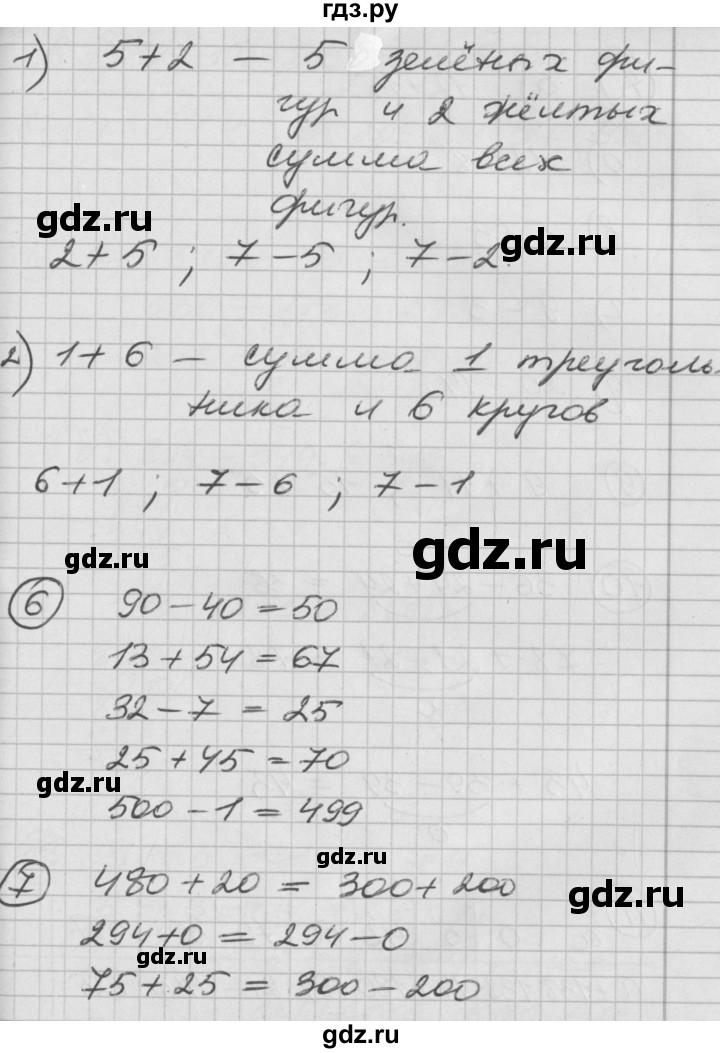 гдз.ру
1) 5+2 — 5 зелёных фи-
гур и 2 жёлтых
сумма всех
фигур.
gdz.ru
gdz.ru
2+5 ; 7-5 ; 7-2.
2) 1+6 — сумма 1 треуголь-
ника и 6 кругов
6+1 ; 7-6 ; 7-1
gdz.ru
gdz.ru
6 90-40=50
13+54=67
32-7=25
25+45=70
gdz.ru
500-1=499
gdz.ru
7 480+20=300+200
gdz.ru
294+0=294-0
gdz.ru
75+25=300-200
gdz.ru